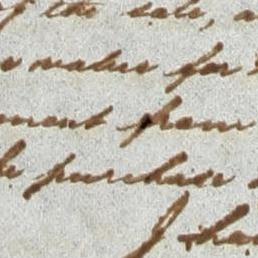 of the sale, a
makes for
ment from
purchase
I sha